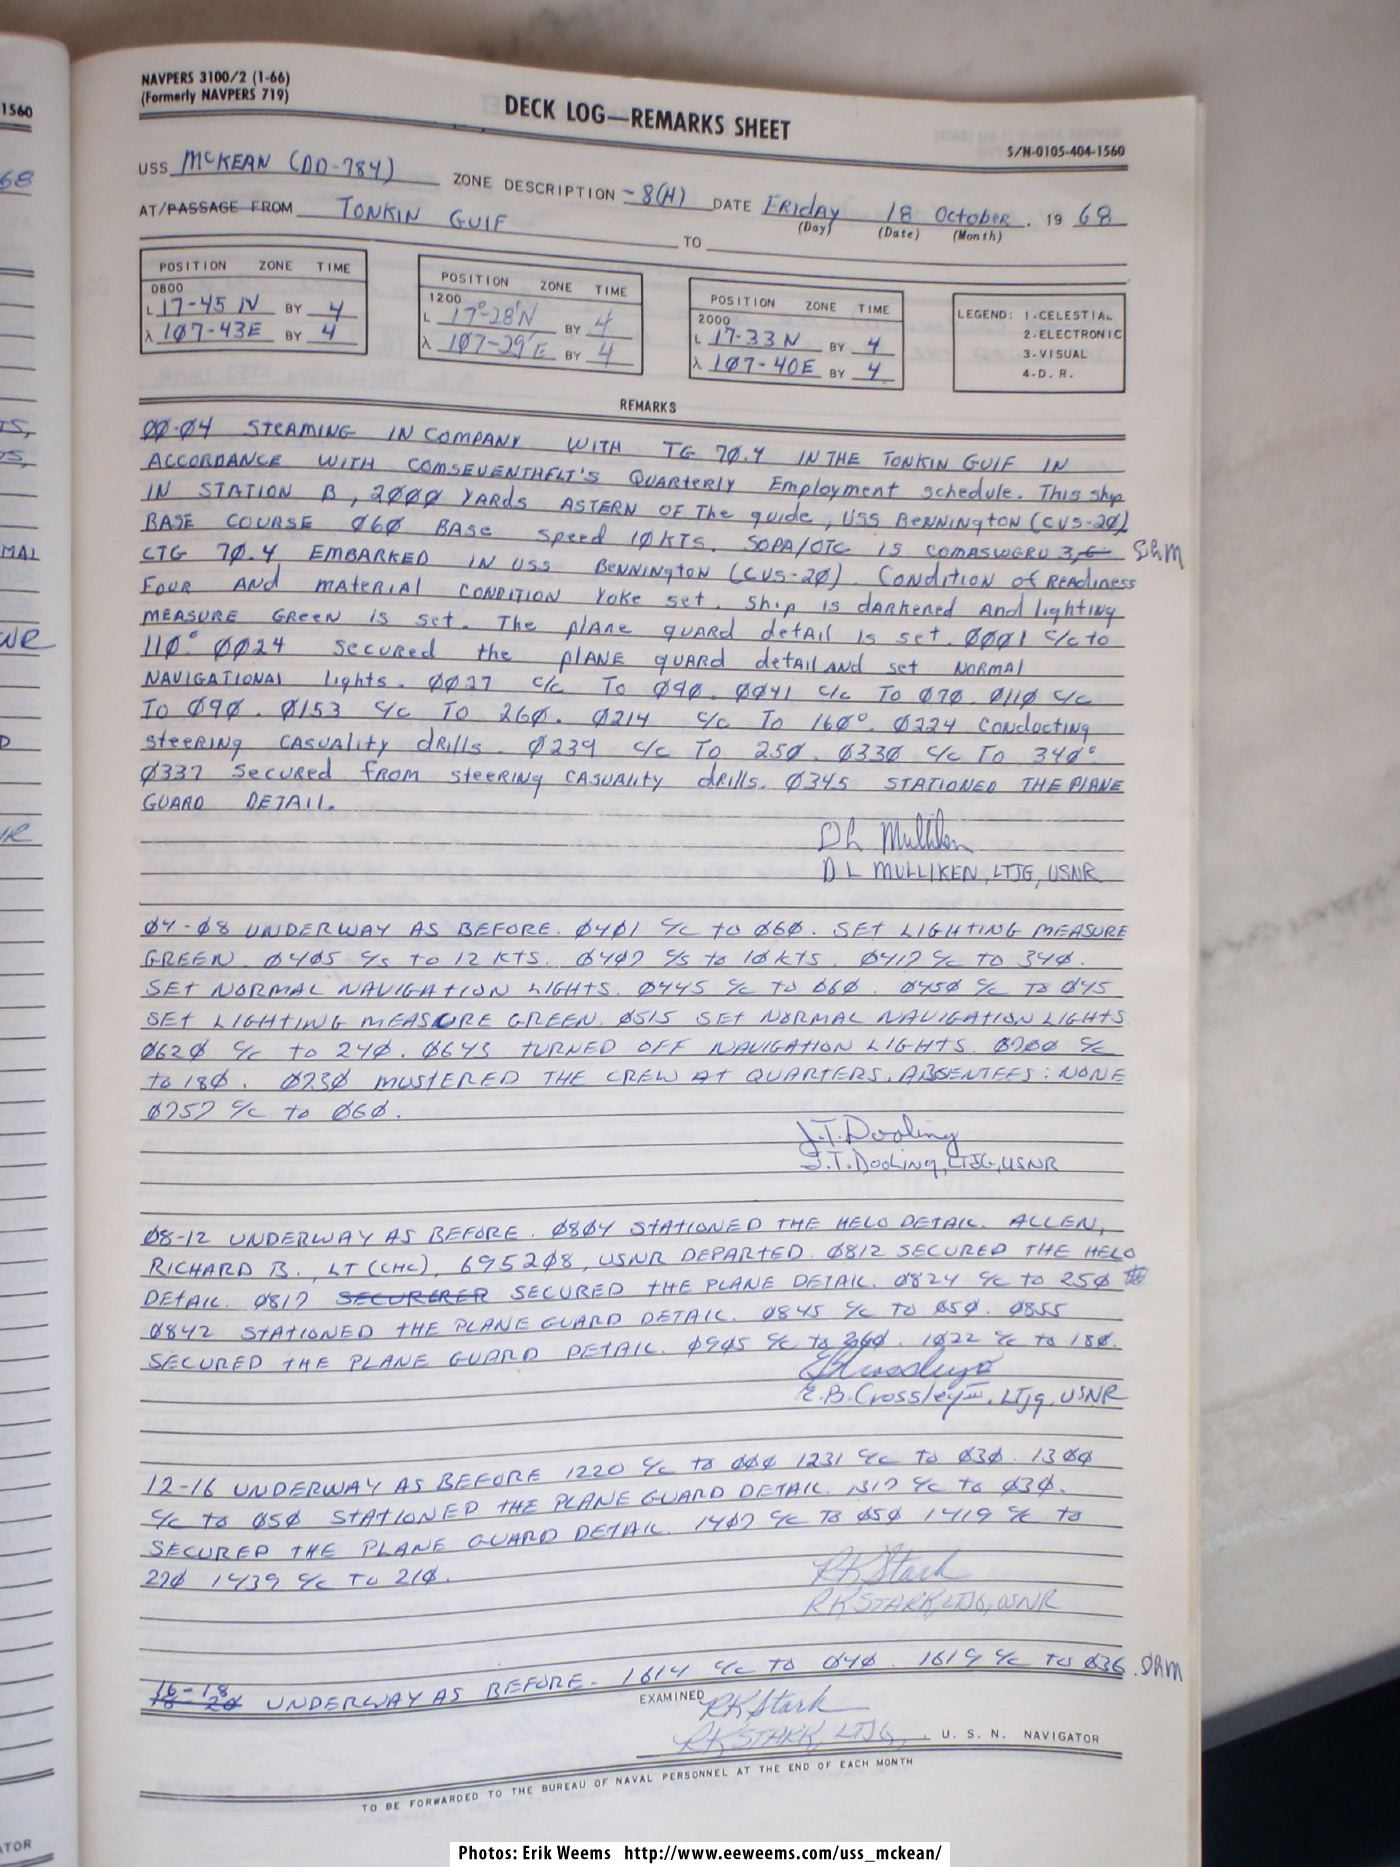 1560
68
TS,
TS,
MAL
NR
D
NR
ATOR
NAVPERS 3100/2 (1-66)
(Formerly NAVPERS 719)
DECK LOG—REMARKS SHEET
S/N-0105-404-1560
USS McKEAN (DD-784) ZONE DESCRIPTION -8(H) DATE FRIDAY 18 OCTOBER, 19 68
(Day) (Date) (Month)
AT/PASSAGE FROM TONKIN GULF TO
POSITION ZONE TIME
0800
L 17-45 N BY 4
λ 107-43E BY 4
POSITION ZONE TIME
1200
L 17°-28'N BY 4
λ 107-29'E BY 4
POSITION ZONE TIME
2000
L 17-33 N BY 4
λ 107-40E BY 4
LEGEND: 1-CELESTIAL
2-ELECTRONIC
3-VISUAL
4-D. R.
REMARKS
00-04 STEAMING IN COMPANY WITH TG 70.4 IN THE TONKIN GULF IN
ACCORDANCE WITH COMSEVENTHFLT'S QUARTERLY Employment schedule. This ship
IN STATION B, 2000 YARDS ASTERN OF The guide, USS BENNINGTON (CVS-20)
BASE COURSE 060 BASE Speed 10 KTS. SOPA/OTC IS COMASWGRU 3, DLM
CTG 70.4 EMBARKED IN USS BENNINGTON (CVS-20). CONDITION of READINESS
FOUR AND MATERIAL CONDITION YOKE set. Ship is dARKENED And lighting
MEASURE GREEN is set. The plANE guARd detAil is set. 0001 C/c to
110° 0024 SECURED the plANE guARd detAil ANd set NORMAl
NAVIGATIONAl lights. 0027 c/c To 090. 0041 c/c To 070. 0110 c/c
To 090. 0153 c/c To 260. 0214 c/c To 160°. 0224 CONDUCTING
steering CASUALITY dRills. 0239 c/c To 250. 0330 c/c To 340°
0337 Secured from steering CASUALITY dRills. 0345 STATIONED THE PLANE
GUARD DETAIL.
D L Mulliken
D L MULLIKEN, LTJG, USNR
04-08 UNDERWAY AS BEFORE. 0401 c/c to 060. SET LIGHTING MEASURE
GREEN. 0405 c/s to 12 KTS. 0407 c/s to 10 KTS. 0417 c/c to 340.
SET NORMAL NAVIGATION LIGHTS. 0445 c/c to 060. 0450 c/c To 045
SET LIGHTING MEASURE GREEN. 0515 SET NORMAL NAVIGATION LIGHTS
0620 c/c to 240. 0643 TURNED OFF NAVIGATION LIGHTS. 0700 c/c
to 180. 0730 MUSTERED THE CREW AT QUARTERS. ABSENTEES: NONE
0757 c/c to 060.
J.T. Dooling
J.T. Dooling, LTJG, USNR
08-12 UNDERWAY AS BEFORE. 0804 STATIONED THE HELO DETAIL. ALLEN,
RICHARD B., LT (CHC), 695208, USNR DEPARTED. 0812 SECURED THE HELO
DETAIL. 0817 SECURERER SECURED THE PLANE DETAIL. 0824 c/c to 250
0842 STATIONED THE PLANE GUARD DETAIL. 0845 c/c To 050. 0855
SECURED THE PLANE GUARD DETAIL. 0905 c/c to 360. 1022 c/c to 180.
E B Crossley III
E.B. Crossley III, LTjg, USNR
12-16 UNDERWAY AS BEFORE 1220 c/c to 000 1231 c/c to 030. 1300
c/c to 050 STATIONED THE PLANE GUARD DETAIL. 1317 c/c to 030.
SECURED THE PLANE GUARD DETAIL. 1407 c/c To 050 1419 c/c to
220 1439 c/c To 210.
RK Stark
RK STARK, LTJG, USNR
16-18
18-20 UNDERWAY AS BEFORE. 1614 c/c to 040. 1619 c/c to 036. DLM
EXAMINED
RK Stark
RK STARK, LTJG, U. S. N. NAVIGATOR
TO BE FORWARDED TO THE BUREAU OF NAVAL PERSONNEL AT THE END OF EACH MONTH
Photos: Erik Weems http://www.eeweems.com/uss_mckean/